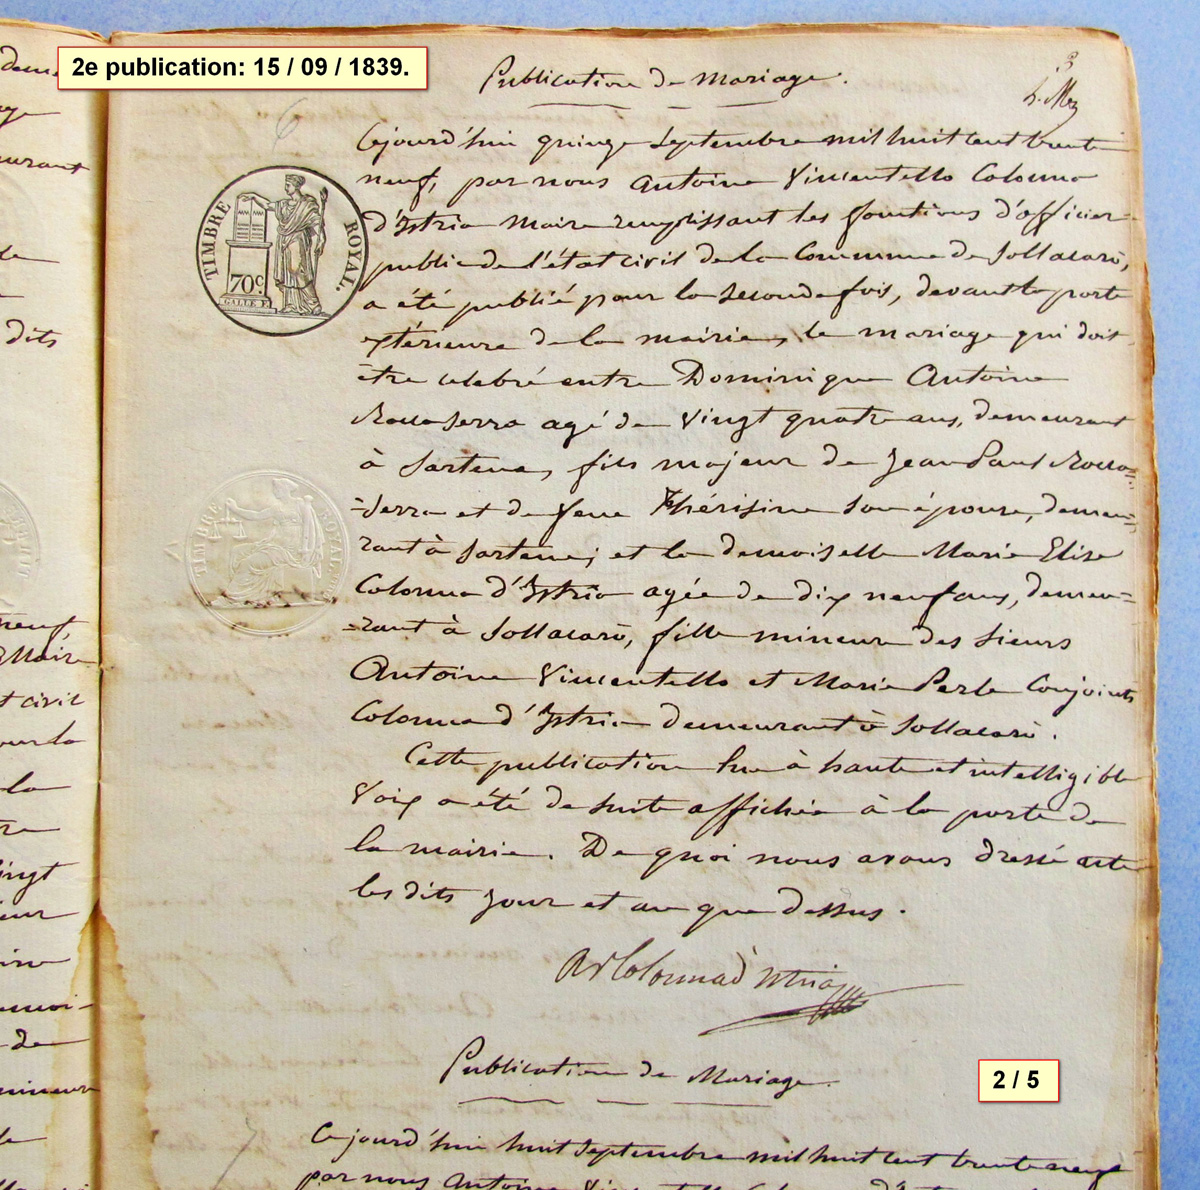 2e publication: 15 / 09 / 1839.
dem
urant
de
dits
neuf,
Maire
t civil
our la
la
vingt
ieur
de
mineure
3
6
Publication de Mariage.
TIMBRE ROYAL.
70c.
TIMBRE ROYAL
Cejourd'hui quinze Septembre mil huit cent trente
neuf, par nous Antoine Vincentello Colonna
d'Istria Maire remplissant les fonctions d'officier
public de l'état civil de la Commune de Sollacarò,
a été publié pour la seconde fois, devant la porte
extérieure de la mairie, le mariage qui doit
être celebré entre Dominique Antoine
Roccaserra agé de vingt quatre ans, demeurant
à Sartene, fils majeur de Jean Paul Rocca=
=serra et de feue Thérésine son épouse, demeu=
rant à Sartene; et la demoiselle Marie Elise
Colonna d'Istria agée de dix neuf ans, demeu=
=rant à Sollacarò, fille mineure des Sieurs
Antoine Vincentello et Marie Perle Conjoints
Colonna d'Istria demeurant à Sollacarò.
Cette publication lue à haute et intelligible
voix a été de suite affichée à la porte de
la mairie. De quoi nous avons dressé acte
les dits jour et an que dessus.
AvColonna d'Istria
Publication de Mariage.
2 / 5
7
Cejourd'hui huit Septembre mil huit cent trente neuf
par nous Antoine Vincentello Colonna d'Istria